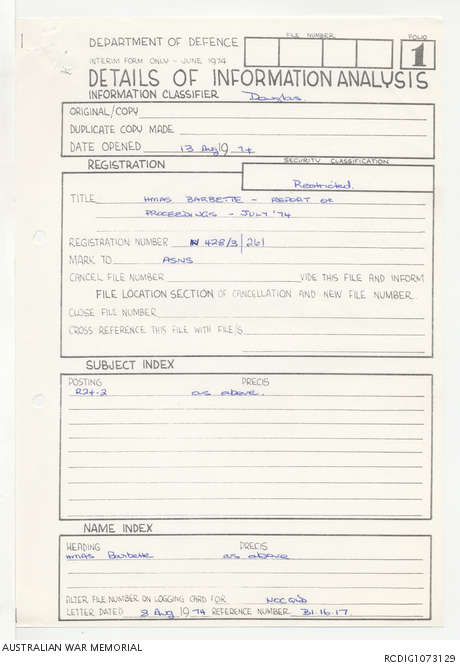 DEPARTMENT OF DEFENCE
FILE NUMBER
FOLIO
1
INTERIM FORM ONLY - JUNE 1974
DETAILS OF INFORMATION ANALYSIS
INFORMATION CLASSIFIER Douglas.
ORIGINAL/COPY
DUPLICATE COPY MADE
DATE OPENED 13 Aug 19 74
REGISTRATION
SECURITY CLASSIFICATION
Restricted.
TITLE HMAS BARBETTE - REPORT OF
PROCEEDINGS - JULY '74
REGISTRATION NUMBER N 428/3/261
MARK TO ASNS
CANCEL FILE NUMBER VIDE THIS FILE AND INFORM
FILE LOCATION SECTION OF CANCELLATION AND NEW FILE NUMBER
CLOSE FILE NUMBER
CROSS REFERENCE THIS FILE WITH FILE/S
SUBJECT INDEX
POSTING PRECIS
R24-2 as above.
NAME INDEX
HEADING PRECIS
HMAS Barbette as above
ALTER FILE NUMBER ON LOGGING CARD FOR
LETTER DATED 2 Aug 1974 REFERENCE NUMBER B1.16.17
AUSTRALIAN WAR MEMORIAL
RCDIG1073129